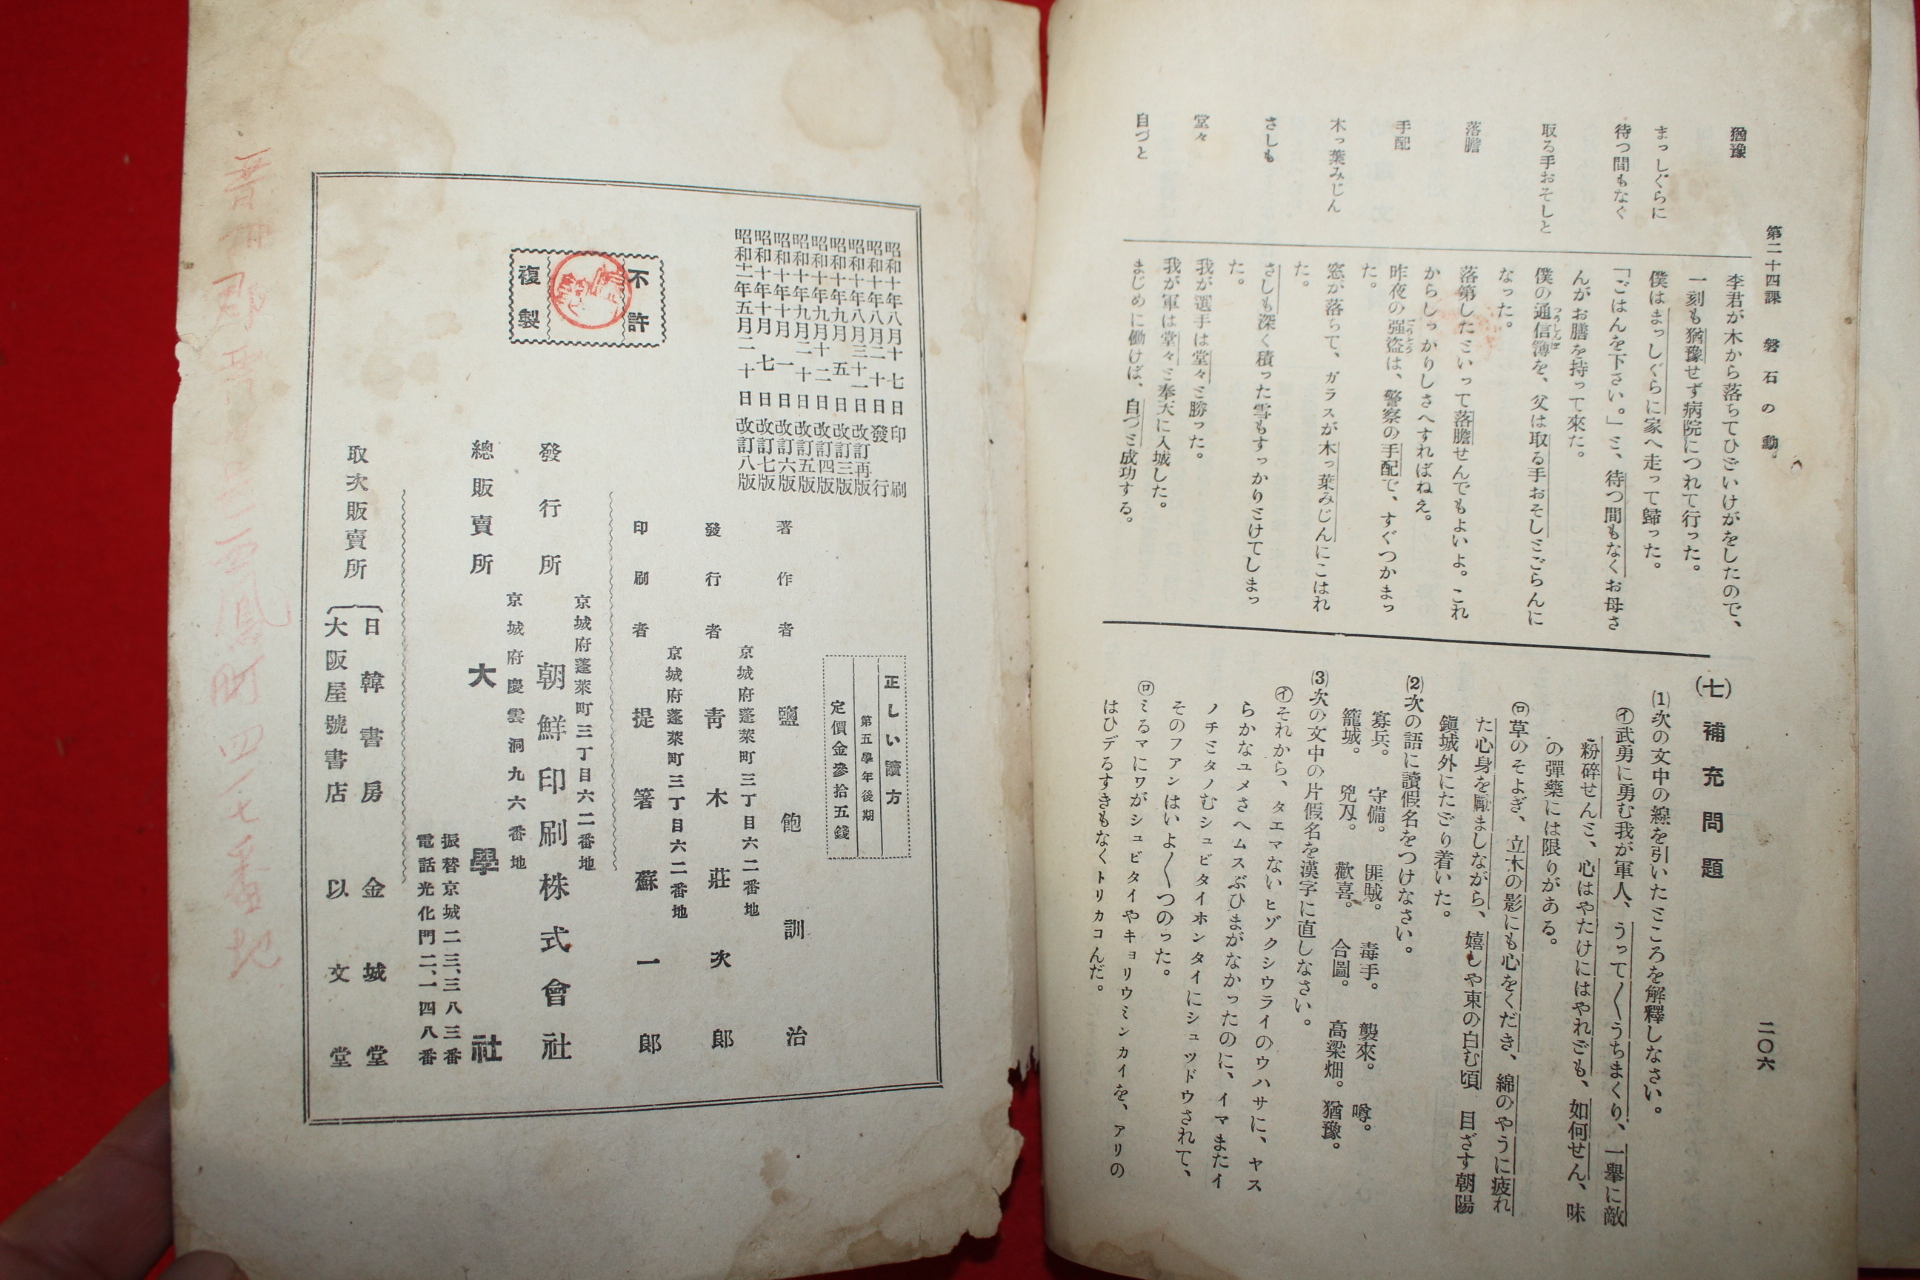 第二十四課　磐石の動。
二〇六
猶豫
まっしぐらに
待つ間もなく
取る手おそしと
落膽
手配
木っ葉みじん
さしも
堂々
自づと
李君が木から落ちてひどいけがをしたので、
一刻も猶豫せず病院につれて行った。
僕はまっしぐらに家へ走って歸った。
「ごはんを下さい。」と、待つ間もなくお母さ
んがお膳を持って來た。
僕の通信簿を、父は取る手おそしとごらんに
なった。
落第したといって落膽せんでもよいよ。これ
からしっかりしさへすればねえ。
昨夜の强盜は、警察の手配で、すぐつかまっ
た。
窓が落ちて、ガラスが木っ葉みじんにこはれ
た。
さしも深く積った雪もすっかりとけてしまっ
た。
我が選手は堂々と勝った。
我が軍は堂々と奉天に入城した。
まじめに働けば、自づと成功する。
(七)補充問題
(1)次の文中の線を引いたところを解釋しなさい。
㋑武勇に勇む我が軍人、うって〳〵うちまくり、一擧に敵
粉碎せんと、心はやたけにはやれども、如何せん、味
の彈藥には限りがある。
㋺草のそよぎ、立木の影にも心をくだき、綿のやうに疲れ
た心身を勵ましながら、嬉しや東の白む頃　目ざす朝陽
鎭城外にたどり着いた。
(2)次の語に讀假名をつけなさい。
寡兵。　守備。　匪賊。　毒手。　襲來。　噂。
籠城。　兇刄。　歡喜。　合圖。　高粱畑。　猶豫。
(3)次の文中の片假名を漢字に直しなさい。
㋑それから、タエマないヒゾクシウライのウハサに、ヤス
らかなユメさへムスぶひまがなかったのに、イマまたイ
ノチとタノむシュビタイホンタイにシュツドウされて、
そのフアンはいよ〳〵つのった。
㋺とるマにワがシュビタイやキョリウミンカイを、アリの
はひデるすきもなくトリカコんだ。
昭和十年八月十七日印刷
昭和十年八月二十日發行
昭和十年八月三十一日改訂再版
昭和十年九月五日改訂三版
昭和十年九月十二日改訂四版
昭和十年九月二十日改訂五版
昭和十年十月一日改訂六版
昭和十年十月七日改訂七版
昭和十一年五月二十日改訂八版
不許
複製
正しい讀方
第五學年後期
定價金參拾五錢
著作者　鹽飽訓治
京城府蓬萊町三丁目六二番地
發行者　靑木莊次郎
京城府蓬萊町三丁目六二番地
印刷者　提箸蘇一郎
京城府蓬萊町三丁目六二番地
發行所　朝鮮印刷株式會社
京城府慶雲洞九六番地
總販賣所　大學社
振替京城二三、三八三番
電話光化門二、一四八番
取次販賣所
日韓書房　金城堂
大阪屋號書店　以文堂